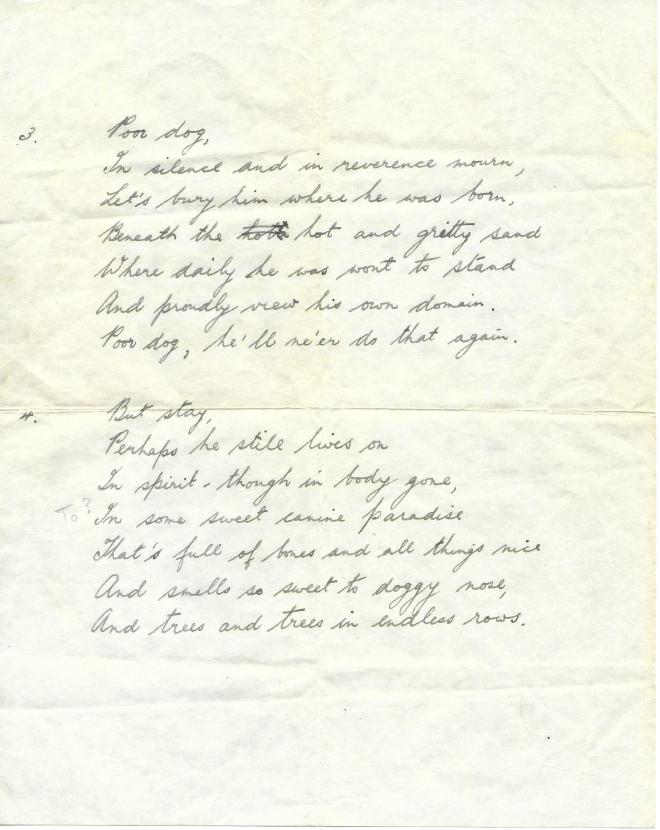 3. Poor dog,
In silence and in reverence mourn,
Let's bury him where he was born,
Beneath the hot and gritty sand
Where daily he was wont to stand
And proudly view his own domain.
Poor dog, he'll ne'er do that again.
4. But stay,
Perhaps he still lives on
In spirit - though in body gone,
To? In some sweet canine paradise
That's full of bones and all things nice
And smells so sweet to doggy nose,
And trees and trees in endless rows.